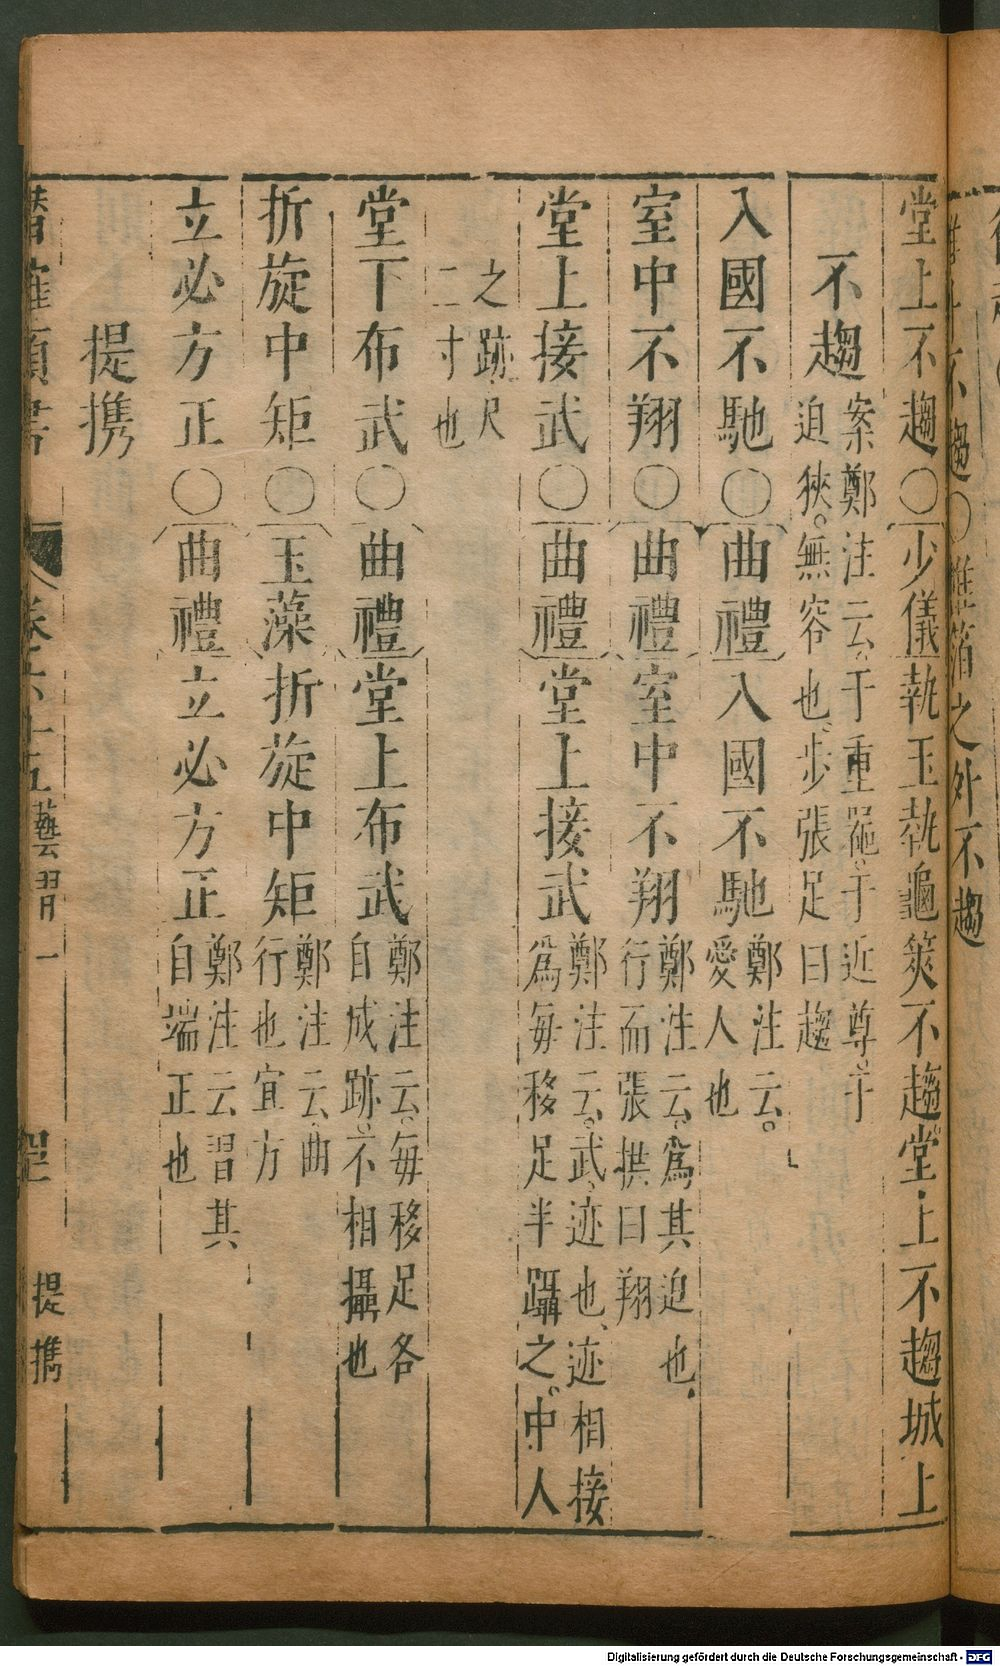 堂上不趨〇少儀執玉執龜筴不趨堂上不趨城上
不趨案鄭注云于重噐于近尊于
迫狹無容也步張足曰趨
入國不馳〇曲禮入國不馳鄭注云
愛人也
室中不翔〇曲禮室中不翔鄭注云爲其迫也
行而張拱曰翔
堂上接武〇曲禮堂上接武鄭注云武迹也迹相接
爲每移足半躡之中人
之跡尺
二寸也
堂下布武〇曲禮堂上布武鄭注云每移足各
自成跡不相攝也
折旋中矩〇玉藻折旋中矩鄭注云曲
行也宜方
立必方正〇曲禮立必方正鄭注云習其
自端正也
提携
卷 藝習一 提携
不趨〇帷箔之外不趨
Digitalisierung gefördert durch die Deutsche Forschungsgemeinschaft - DFG